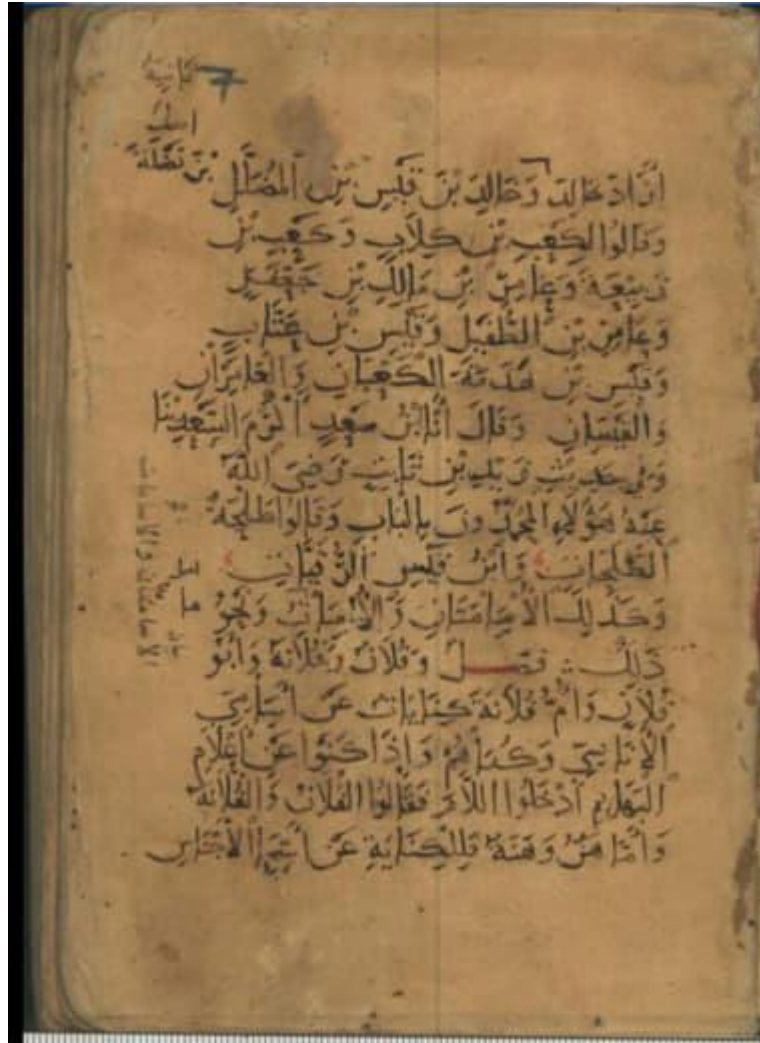 ثانية
اسد
بن نضلة
اراد خالد وخالد بن قيس بن المضلل
وقالوا لكعب بن كلاب وكعب بن
ربيعة وعامر بن مالك بن جعفر
وعامر بن الطفيل وقيس بن عتاب
وقيس بن هذمة الكعبان والعامران
والقيسان وقال انا ابن سعد اكرم السعدينا
وفي حديث زيد بن ثابت رضي الله
عنه هؤلاء المحمدون بالباب وقالوا طلحة
الطلحات وابن قيس الرقيات
وكذلك الاسامتان والاسامات ونحو
ذلك فصل وفلان وفلانة وابو
فلان وام فلانة كنايات عن اسامي
الاناسي وكناهم واذا كنوا عن اعلام
البهايم ادخلوا اللام فقالوا الفلان والفلانة
واما هن وهنة فللكناية عن اسماء الاجناس